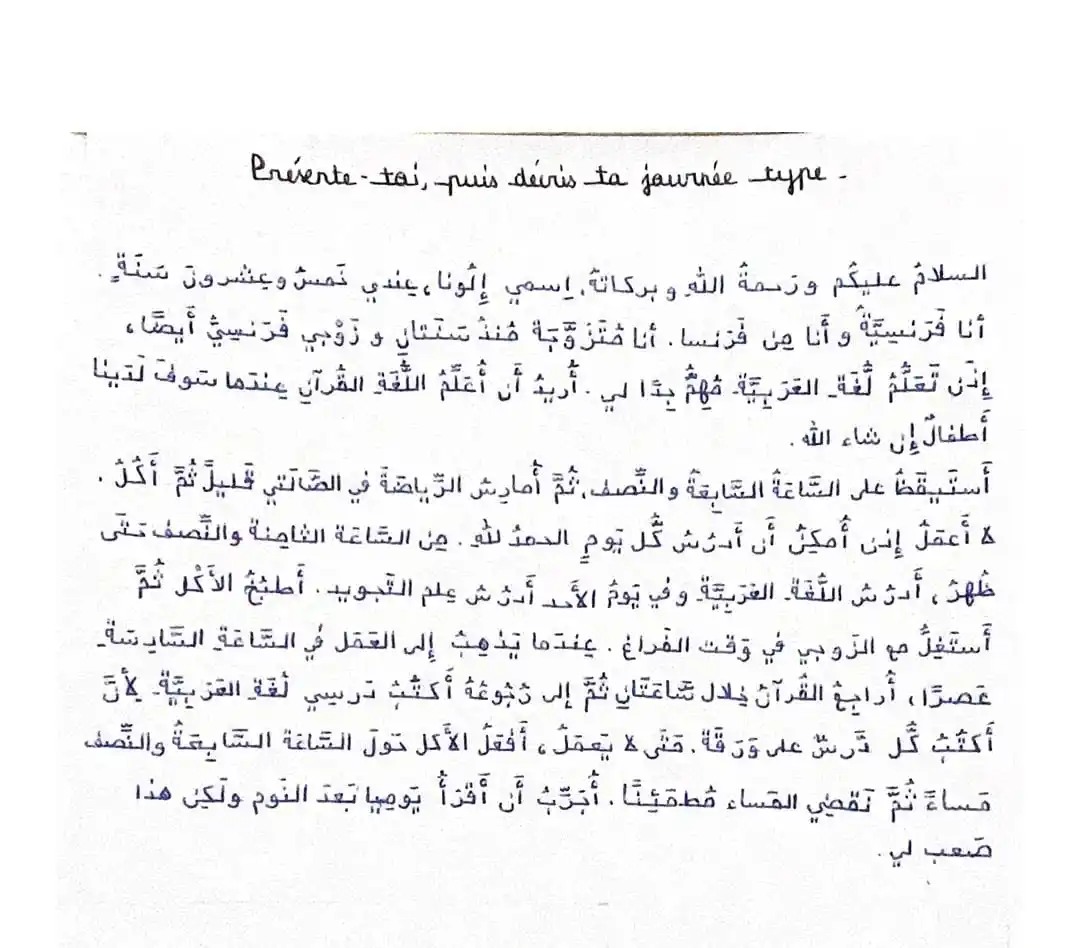 Présente-toi, puis décris ta journée type.
السلامُ عليكُم ورَحمةُ اللهِ وبركاتهُ. إسمي إِلُونا، عِندي خَمسٌ وعِشرونَ سَنَةٍ.
أنا فَرَنسِيَّةٌ و أَنا مِن فَرَنسا. أنا مُتَزَوَّجَة مُنذُ سَنَتانِ و زَوْجي فَرَنسِيٌّ أَيضًا،
إِذَن تَعَلُّمُ لُغَةِ العَرَبِيَّةِ مُهِمٌّ جِدًا لي. أُريدُ أَن أُعَلِّمُ اللُّغَةِ القُرآنِ عِندَما سَوفَ لَدَينا
أَطفالٌ إِن شاء الله.
أَستَيقَظُ على السَّاعَةُ السَّابِعَةُ والنِّصف، ثُمَّ أُمارِسُ الرِّياضَةَ في الصَّالَتي قَليلً ثُمَّ أَكُلُ.
لا أَعمَلُ إِذن أُمكِنُ أَن أَدرُسُ كُلَّ يَومٍ الحمدُ للهِ. مِن السَّاعَة الثامِنة والنِّصف حَتَّى
ظُهرُ، أَدرُسُ اللُّغَةِ العَرَبِيَّةِ وفي يَومُ الأَحد أَدرُسُ عِلم التَجويد. أَطبُخُ الأَكل ثُمَّ
أَستَغِلُّ مع الزَوجي في وَقت الفَراغ. عِندَما يَذهِبُ إلى العَمَل في السَّاعَةِ السَّادِسَةِ
عَصرًا، أُراجِعُ القُرآنُ خِلال سَاعَتَانِ ثُمَّ إلى رُجُوعُهُ أَكتُبُ دَرسي لُغَةِ العَرَبِيَّةِ لأَنَّ
أَكتُبُ كُل دَرسٌ على وَرَقَة. مَتَى لا يَعمَلُ، أَفعَلُ الأكل حَولَ السَّاعَة السَّابِعَةُ والنِّصف
مَساءً ثُمَّ نَقضِي المَساء مُطمَئِنًّا. أُجَرِّبُ أَن أَقرَأُ يَومِيا بَعدَ النَوم ولَكِن هذا
صَعب لي.